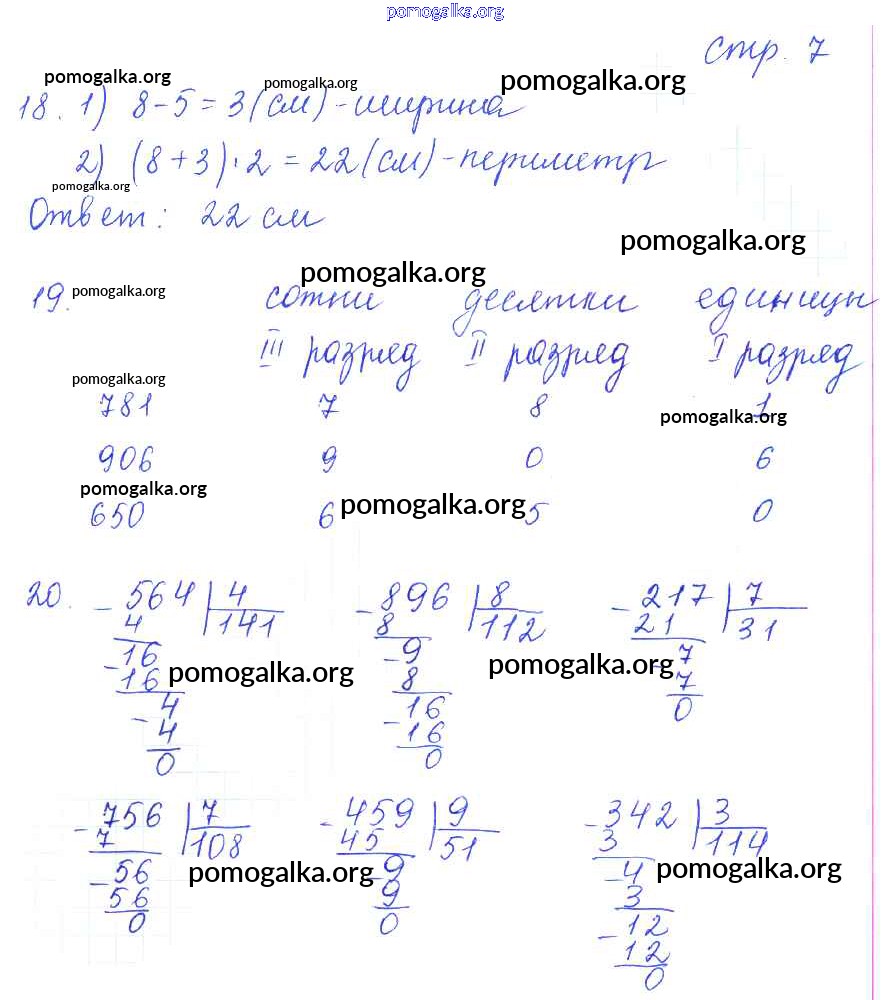 pomogalka.org
стр. 7
pomogalka.org pomogalka.org pomogalka.org
18. 1) 8 - 5 = 3 (см) - ширина
2) (8 + 3) · 2 = 22 (см) - периметр
pomogalka.org
Ответ: 22 см
pomogalka.org
pomogalka.org
19. pomogalka.org сотни десятки единицы
III разряд II разряд I разряд
pomogalka.org
781 7 8 1
pomogalka.org
906 9 0 6
pomogalka.org
650 6 pomogalka.org 5 0
20. - 564 | 4 - 896 | 8 - 217 | 7
4 141 8 112 21 31
- 16 - 9 - 7
16 pomogalka.org 8 pomogalka.org 7
- 4 16 0
4 - 16
0 0
- 756 | 7 - 459 | 9 - 342 | 3
7 108 45 51 3 114
- 56 pomogalka.org - 9 - 4 pomogalka.org
56 9 3
0 0 - 12
12
0